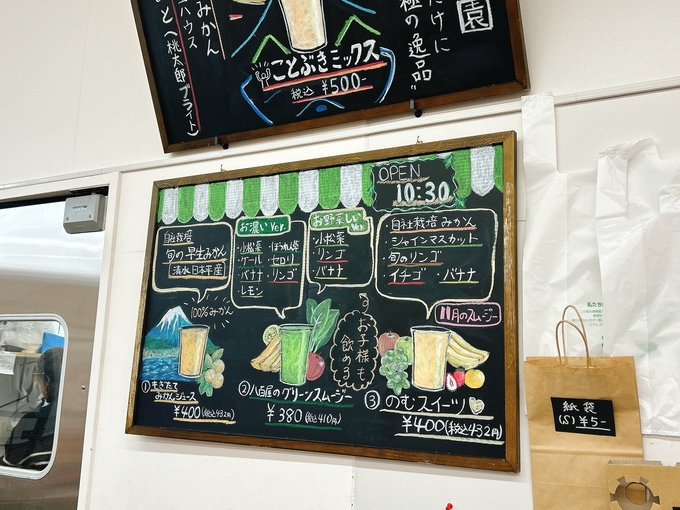 みかん
ハウス
と(桃太郎ブライト)
だけに
極の逸品"
園
ことぶきミックス
税込 ¥500-
OPEN
10:30
自社栽培
旬の早生みかん
清水日本平産
100%みかん
①もぎたて
みかんジュース
¥400(税込432円)
お濃い Ver.
・小松菜 ・ほうれん草
・ケール ・セロリ
・バナナ ・リンゴ
・レモン
お野菜しい Ver.
・小松菜
・リンゴ
・バナナ
お子様も
飲める
②八百屋のグリーンスムージー
¥380(税込410円)
・自社栽培みかん
・シャインマスカット
・旬のリンゴ
・イチゴ ・バナナ
11月のスムージー
③のむスイーツ
¥400(税込432円)
私たち
紙袋
(S)¥5-